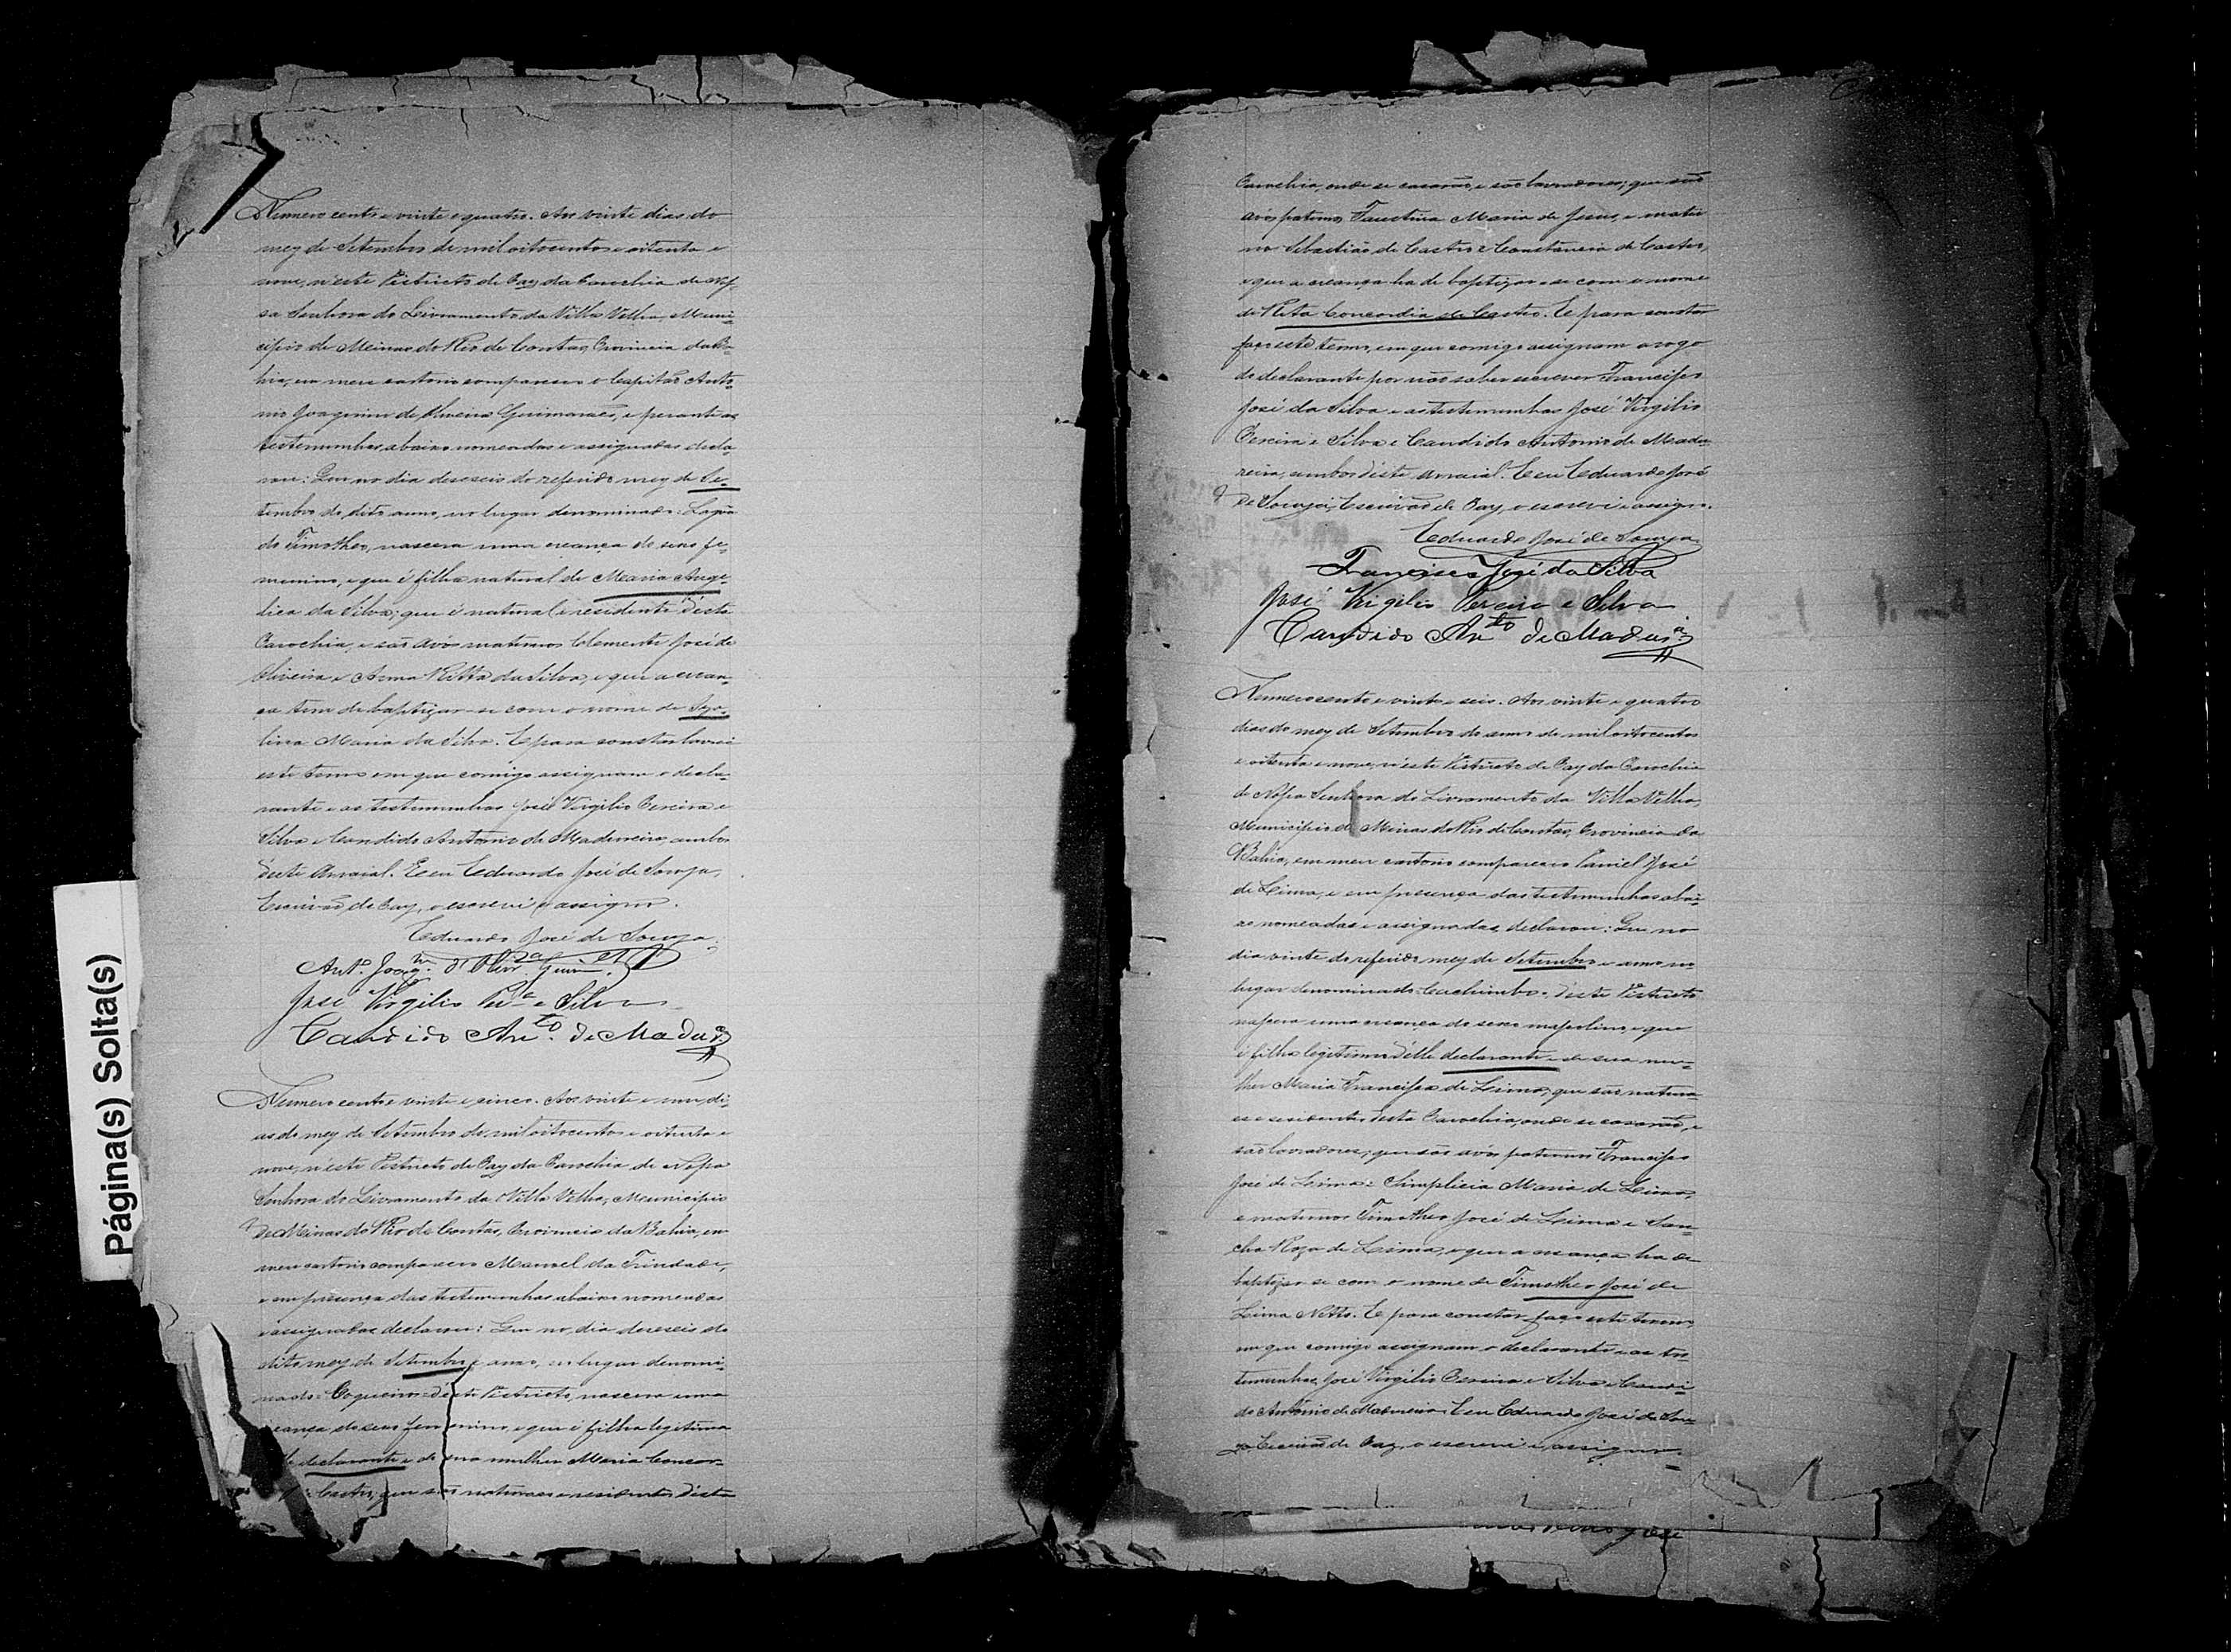 Numero cento e vinte e quatro. Aos vinte dias do
mez de Setembro de mil oitocentos e oitenta e
nove, n'este Districto de Paz da Parochia de Nos-
sa Senhora do Livramento da Villa Velha, Muni-
cipio de Minas do Rio de Contas, Provincia da Ba-
hia, em meu cartorio compareceo o Capitão Anto-
nio Joaquim de Oliveira Guimarães, e perante as
testemunhas abaixo nomeadas e assignadas decla-
rou: Que no dia deseseis do referido mez de Se-
tembro do dito anno, no lugar denominado Lagôa
do Timotheo, nascera uma creança do sexo fe-
menino, e que é filha natural de Maria Ange-
lica da Silva; que é natural e residente d'esta
Parochia, e são avós maternos Clemente José de
Oliveira e Anna Ritta da Silva, e que a crean-
ça tem de baptizar-se com o nome de
lina Maria da Silva. E para constar lavrei
este termo em que comigo assignam o decla-
rante e as testemunhas José Virgilio Pereira e
Silva e Candido Antonio de Madureira, ambos
d'este Arraial. E eu Eduardo José de Souza,
Escrivão de Paz, o escrevi e assigno.
Eduardo José de Souza
Antº. Joaqm. d'Olivra. Guim.
José Virgilio Perª e Silva
Candido Anto. de Madura.
Numero cento e vinte e cinco. Aos vinte e um di-
as do mez de Setembro de mil oitocentos e oitenta e
nove, n'este Districto de Paz da Parochia de Nossa
Senhora do Livramento da Villa Velha, Municipio
de Minas do Rio de Contas, Provincia da Bahia, em
meu cartorio compareceo Manoel da Trindade,
e em presença das testemunhas abaixo nomeadas
e assignadas declarou: Que no dia deseseis do
dito mez de Setembro e anno, no lugar denomi-
nado Coqueiros d'este Districto, nascera uma
creança do sexo femenino, e que é filha legitima
declarante e de sua mulher Maria Concor-
Castro, que são naturaes e residentes d'esta
Parochia, onde se casarão, e são lavradores; que são
avós paternos Faustina Maria de Jesus, e mater-
no Sebastião de Castro e Constancia de Castro,
e que a creança ha de baptizar-se com o nome
de Rita Concordia de Castro. E para constar
faço este termo, em que comigo assignam a rogo
do declarante por não saber escrever Francisco
José da Silva e as testemunhas José Virgilio
Pereira e Silva e Candido Antonio de Madu-
reira, ambos d'este Arraial. E eu Eduardo José
de Souza, Escrivão de Paz, o escrevi e assigno.
Eduardo José de Souza
Francisco José da Silva
José Virgilio Pereira e Silva
Candido Anto de Madura.
Numero cento e vinte e seis. Aos vinte e quatro
dias do mez de Setembro do anno de mil oitocentos
e oitenta e nove, n'este Districto de Paz da Parochia
de Nossa Senhora do Livramento da Villa Velha,
Municipio de Minas do Rio de Contas, Provincia da
Bahia, em meu cartorio compareceo Daniel José
de Lima, e em presença das testemunhas abai-
xo nomeadas e assignadas, declarou: Que no
dia vinte do referido mez de Setembro e anno no
lugar denominado Cachimbo, d'este Districto
nascera uma creança do sexo masculino, e que
é filho legitimo d'elle declarante e de sua mu-
lher Maria Francisca de Lima, que são natura-
es e residentes d'esta Parochia, onde se casarão, e
são lavradores, que são avós paternos Francisco
José de Lima e Simplicia Maria de Lima,
e maternos Timotheo José de Lima e San-
cha Roza de Lima, e que a creança ha de
baptizar-se com o nome de Timotheo José de
Lima Netto. E para constar faço este termo,
em que comigo assignam o declarante e as tes-
temunhas José Virgilio Pereira e Silva e Candi-
do Antonio de Madureira. E eu Eduardo José de Sou-
za Escrivão de Paz, o escrevi e assigno.
Página(s) Solta(s)